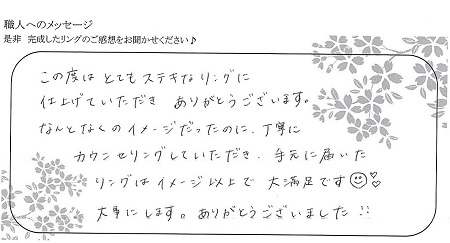 職人へのメッセージ
是非 完成したリングのご感想をお聞かせください♪
この度は とても ステキなリングに
仕上げていただき ありがとうございます。
なんとなくのイメージだったのに、丁寧に
カウンセリングしていただき、手元に届いた
リングはイメージ以上で 大満足です☺♡♡
大事にします。ありがとうございました!!